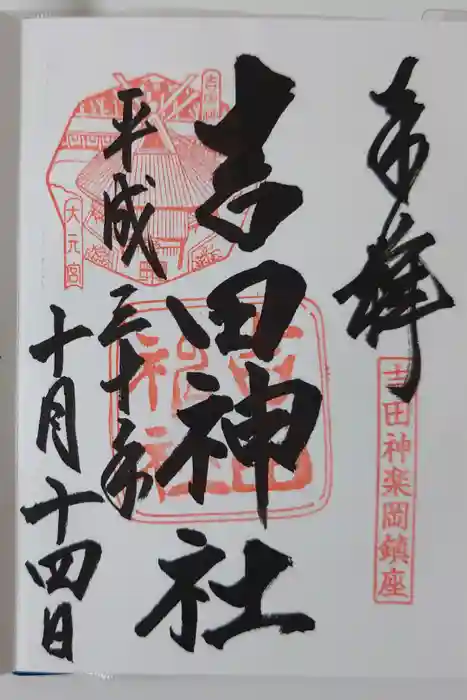 奉拝
吉田神楽岡鎮座
吉田神社
吉田神社
平成三十年
十月十四日
大元宮